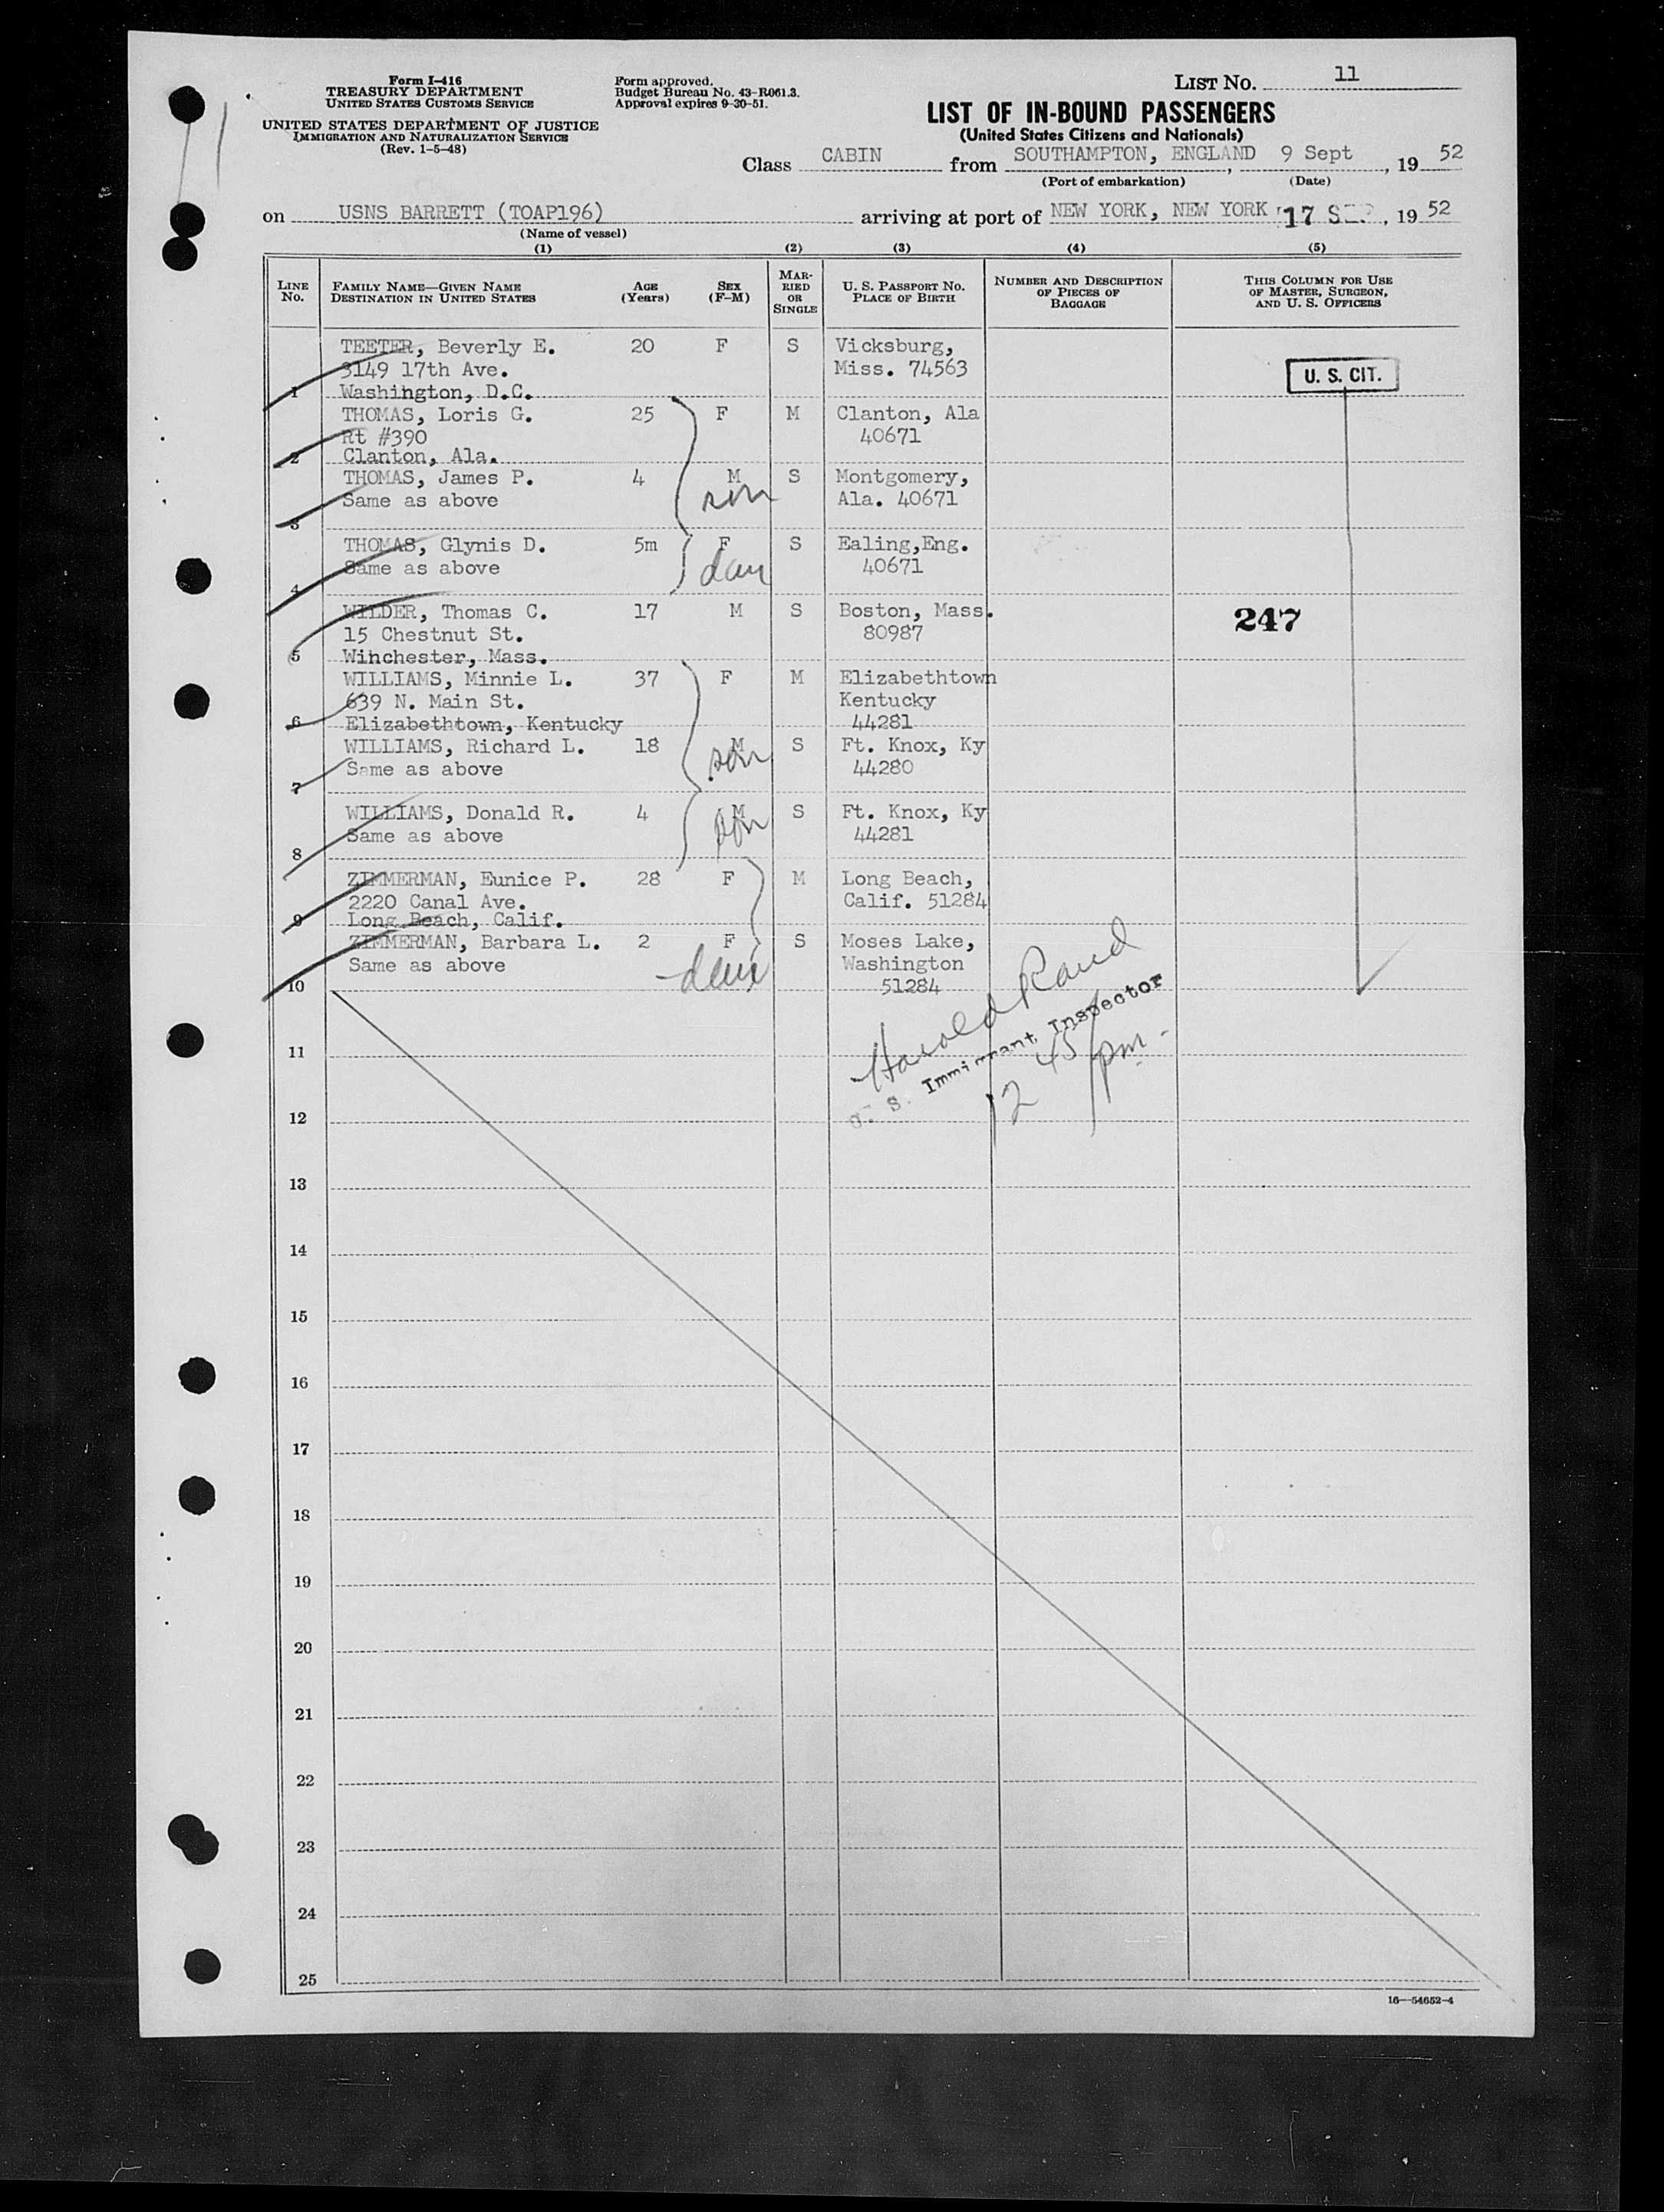 Form I-416
TREASURY DEPARTMENT
UNITED STATES CUSTOMS SERVICE
UNITED STATES DEPARTMENT OF JUSTICE
IMMIGRATION AND NATURALIZATION SERVICE
(Rev. 1-5-48)
Form approved.
Budget Bureau No. 43-R061.3.
Approval expires 9-30-51.
LIST No. 11
LIST OF IN-BOUND PASSENGERS
(United States Citizens and Nationals)
Class CABIN from SOUTHAMPTON, ENGLAND, 9 Sept, 19 52
(Port of embarkation) (Date)
on USNS BARRETT (TOAP196) arriving at port of NEW YORK, NEW YORK 17 SEP, 19 52
(Name of vessel)
(1) (2) (3) (4) (5)
LINE No. FAMILY NAME—GIVEN NAME DESTINATION IN UNITED STATES AGE (Years) SEX (F-M) MARRIED OR SINGLE U. S. PASSPORT NO. PLACE OF BIRTH NUMBER AND DESCRIPTION OF PIECES OF BAGGAGE THIS COLUMN FOR USE OF MASTER, SURGEON, AND U. S. OFFICERS
TEETER, Beverly E. 20 F S Vicksburg,
3149 17th Ave. Miss. 74563 U. S. CIT.
1 Washington, D.C.
THOMAS, Loris G. 25 F M Clanton, Ala
Rt #390 40671
2 Clanton, Ala.
THOMAS, James P. 4 M S Montgomery,
Same as above son Ala. 40671
3
THOMAS, Glynis D. 5m F S Ealing,Eng.
Same as above dau 40671
4
WILDER, Thomas C. 17 M S Boston, Mass. 247
15 Chestnut St. 80987
5 Winchester, Mass.
WILLIAMS, Minnie L. 37 F M Elizabethtown
639 N. Main St. Kentucky
6 Elizabethtown, Kentucky 44281
WILLIAMS, Richard L. 18 M S Ft. Knox, Ky
Same as above son 44280
7
WILLIAMS, Donald R. 4 M S Ft. Knox, Ky
Same as above son 44281
8
ZIMMERMAN, Eunice P. 28 F M Long Beach,
2220 Canal Ave. Calif. 51284
9 Long Beach, Calif.
ZIMMERMAN, Barbara L. 2 F S Moses Lake,
Same as above dau Washington
10 51284
Harold Rand
U. S. Immigrant Inspector
12 45/pm
11
12
13
14
15
16
17
18
19
20
21
22
23
24
25
16—54652-4